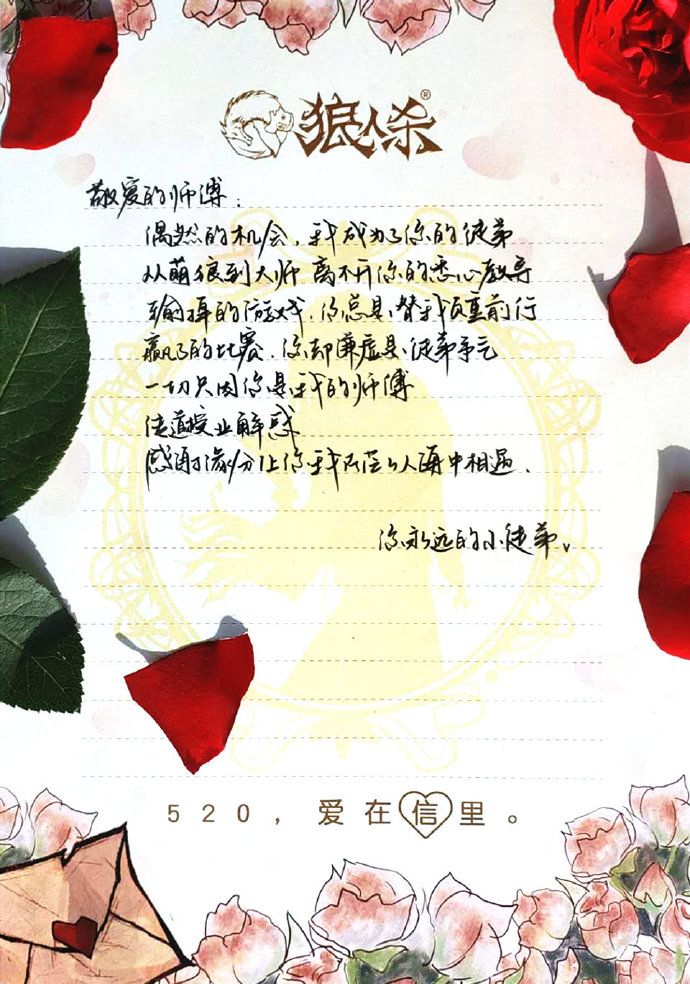 狼人杀®
敬爱的师傅：
偶然的机会，我成为了你的徒弟
从萌狼到大师 离不开你的悉心教导
输掉的游戏，你总是替我负重前行
赢了的比赛，你却谦虚是徒弟争气
一切只因你是我的师傅
传道授业解惑
感谢缘分让你我在茫茫人海中相遇．
你永远的小徒弟、
520，爱在信里。